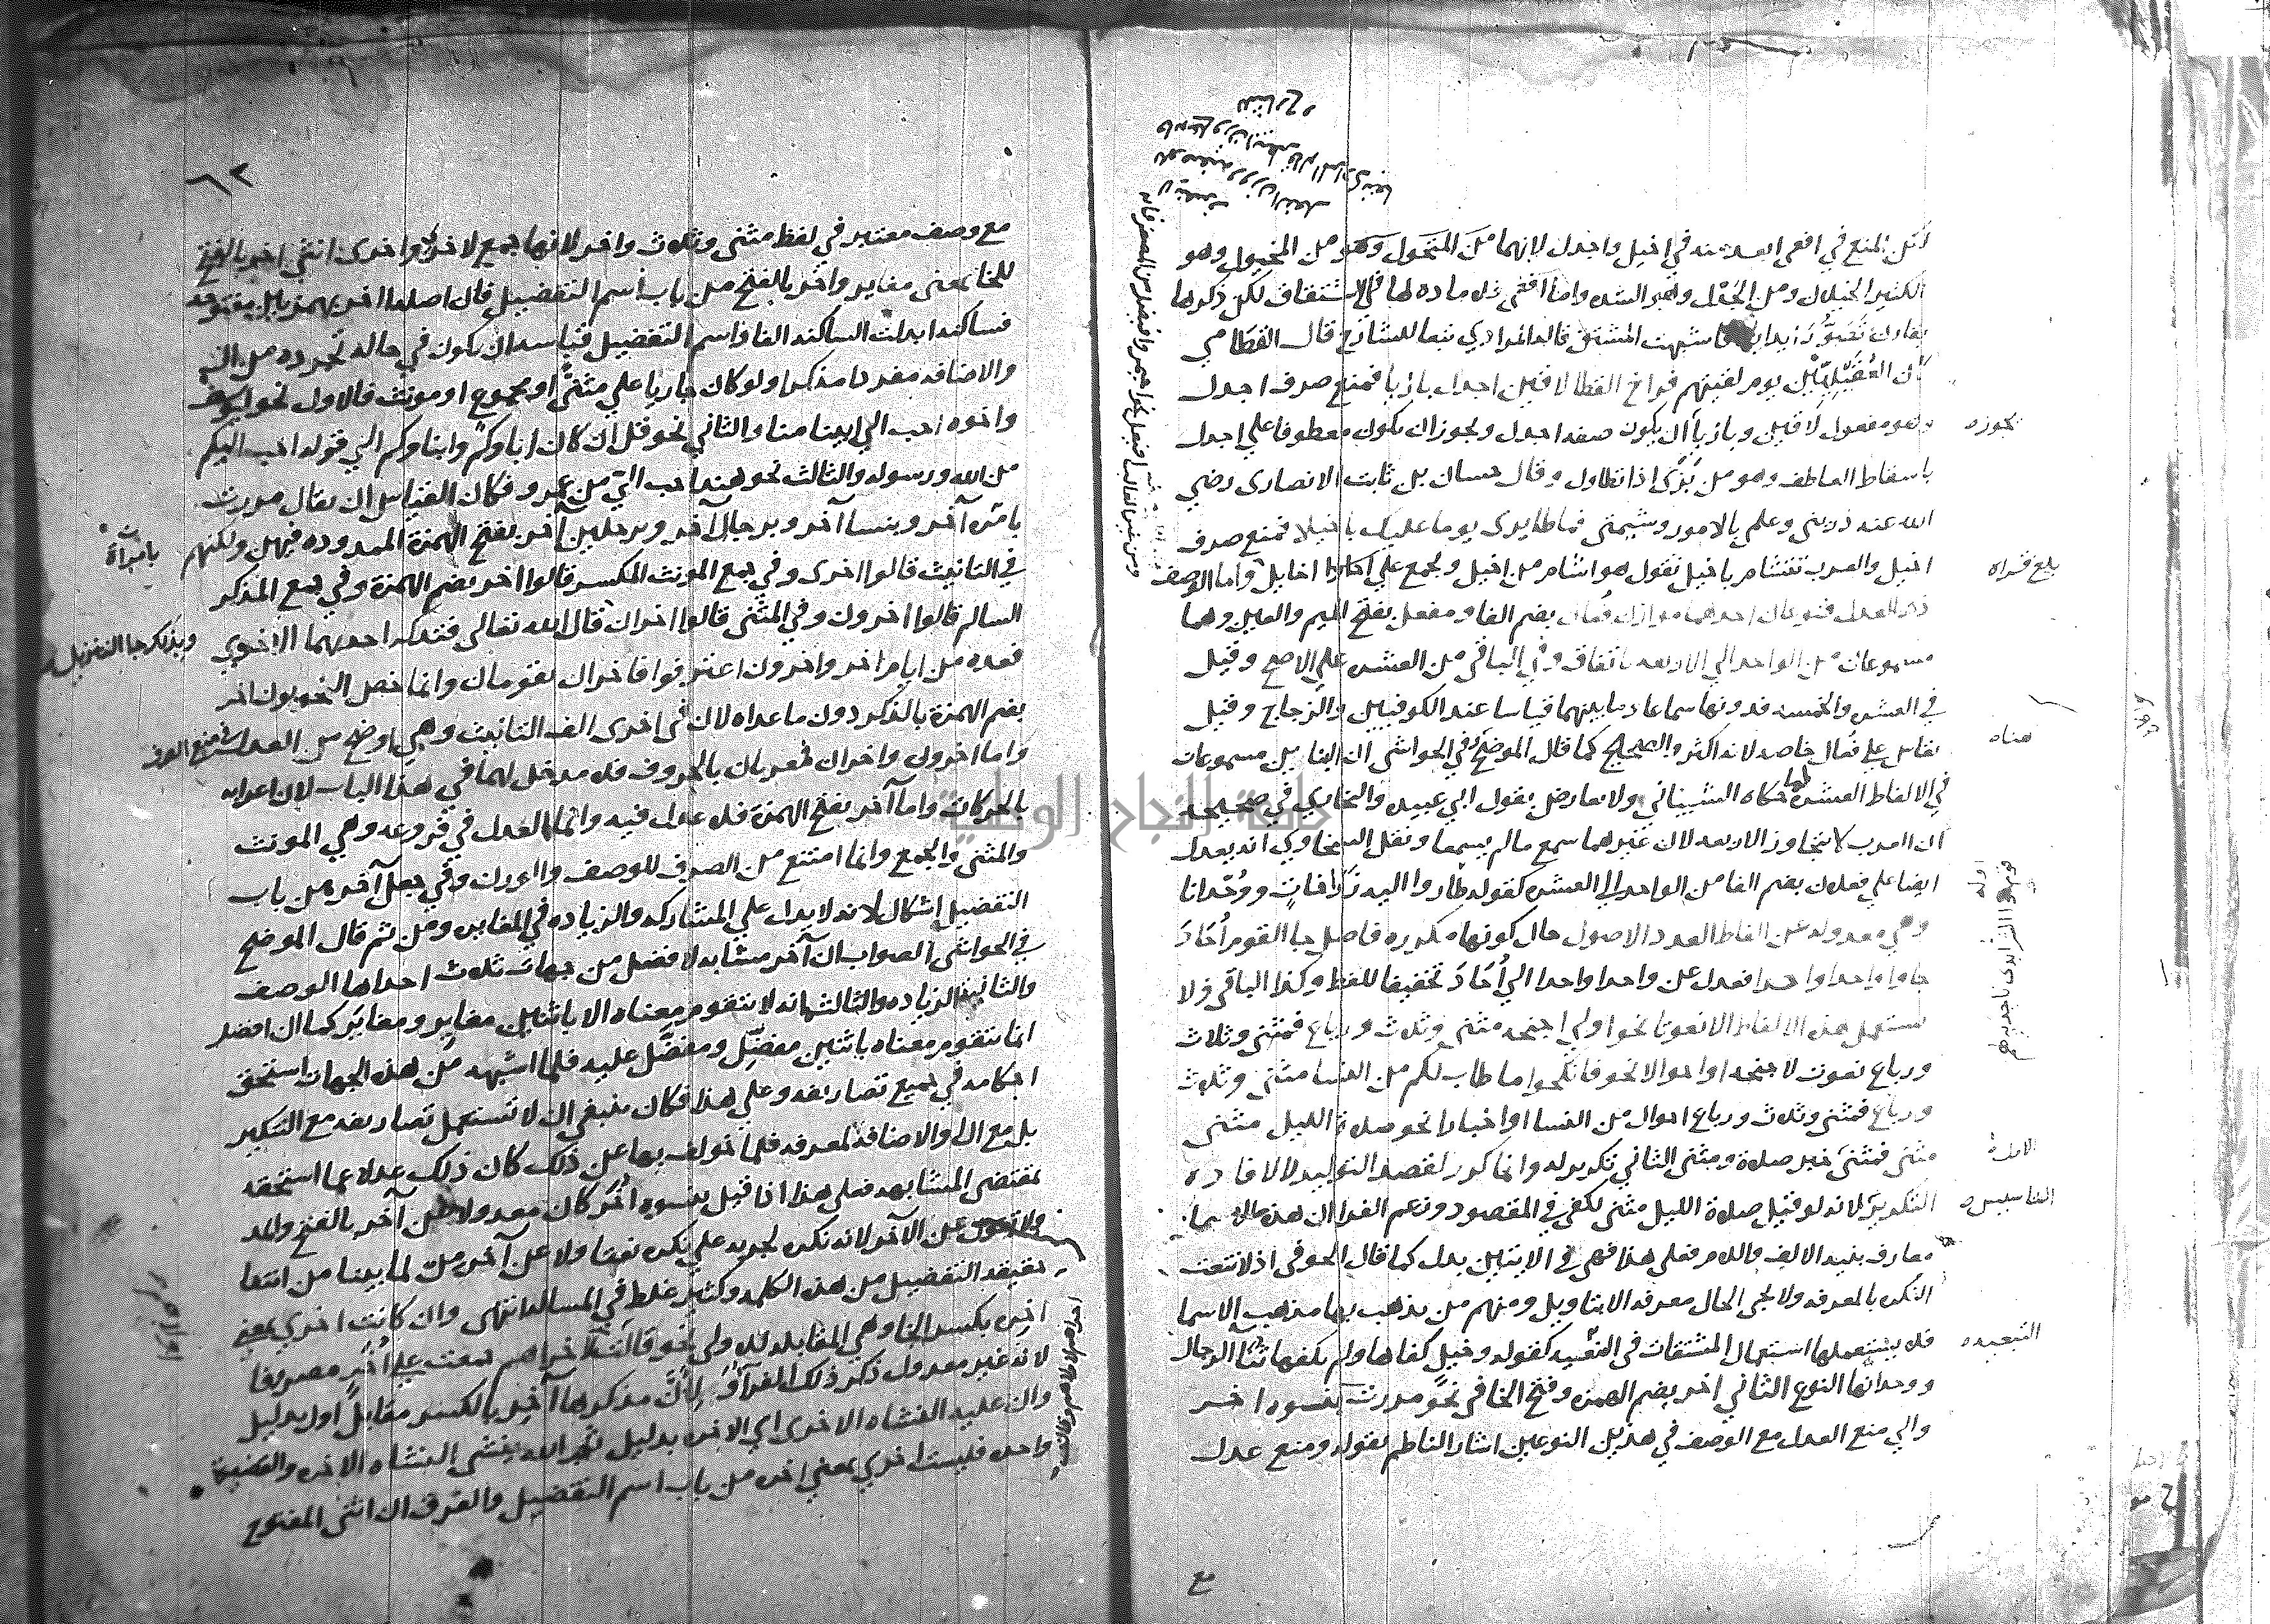 لكن المنع في افعى ابعد منه في اخيل واجدل لانهما من المتحول وهو من المخيول وهو
الكثير الخيلان ومن الجدل وهو الشده واما افعى فلا ماده لها في الاشتقاق لكن ذكرها
يقارن تصور ايذايها فاشبهت المشتق قاله المرادي تبعا للشارح قال القطامي
كان العقيليين يوم لقيتهم فراخ القطا لاقين اجدل بازيا فمنع صرف اجدل
وهو مفعول لاقين وبازيا ان يكون صفه اجدل ويجوز ان يكون معطوفا علي اجدل
يجوزه
باسقاط العاطف وهو من بزى اذا تطاول وقال حسان بن ثابت الانصارى رضي
الله عنه ذريني وعلمي بالامور وشيمتي فما طايرى يوما عليك باخيلا فمنع صرف
اخيل والعرب تتشام باخيل تقول هو اشام من اخيل ويجمع علي اخايل واما الوصف
بلغ قراه
ذو العدل فنوعان احدهما موازن فعال بضم الفا ومفعل بفتح الميم والعين وهما
مسموعان من الواحد الي الاربعه باتفاق وفي الباقي من العشره علي الاصح وقيل
في العشره والخمسه فدونها سماعا وما بينهما قياسا عند الكوفيين والزجاج وقيل
يقاس علي فعال خاصه لانه اكثر والصحيح كما قال الموضح في الحواشي ان البنايين مسموعان
هناه
في الالفاظ العشره حكاه الشيباني ولا يعارض بقول ابي عبيده والبخاري في صحيحه
ان العرب لا تتجاوز الاربعه لان غيرهما سمع ما لم يسمعا ونقل السخاوي انه يعدل
ايضا علي فعلان بضم الفا من الواحد الي العشره كقوله طاروا اليه زرافات ووحدانا
وهي معدوله عن الفاظ العدد الاصول حال كونها مكرره فاصل جا القوم أحاد
جاوا واحدا واحدا فعدل عن واحدا واحدا الي أحاد تخفيفا للفظ وكذا الباقي ولا
تستعمل هذه الالفاظ الا نعوتا نحو اولي اجنحه مثنى وثلاث ورباع فمثنى وثلاث
ورباع نعوت لاجنحه او احوالا نحو فانكحوا ما طاب لكم من النسا مثنى وثلاث
ورباع فمثنى وثلاث ورباع احوال من النسا او اخبارا نحو صلاة الليل مثنى
مثنى فمثنى خبر صلاة ومثنى الثاني تكرير له وانما كرر لقصد التوكيد لا لافادة
التكرير لانه لو قيل صلاة الليل مثنى لكفى في المقصود وزعم الفرا ان هذه الاسما
معارف بنيه الالف واللام فعلي هذا فهي في الايتين بدل كما قال الحوفي اذ لا تنعت
النكره بالمعرفه ولا تجي الحال معرفه الا بتاويل ومنهم من يذهب بها مذهب الاسما
فلا يستعملها استعمال المشتقات في التبعيه كقوله وخيل كفاها ولم يكفها ثنا الرجال
التبعيده
ووحدانها النوع الثاني اخر بضم الهمزه وفتح الخا في نحو مررت بنسوه اخر
والي منع العدل مع الوصف في هذين النوعين اشار الناظم بقوله ومنع عدل
مع
٦٢
مع وصف معتبر في لفظ مثنى وثلاث واخر لانها جمع لاخرى واخرى انثى اخر بالفتح
للخا بمعنى مغاير واخر بالفتح من باب اسم التفضيل فان اصله ااخر بهمزتين مفتوحه
فساكنه ابدلت الساكنه الفا واسم التفضيل قياسه ان يكون في حاله تجرده من ال
والاضافه مفردا مذكرا ولو كان جاريا علي مثنى او مجموع او مونث فالاول نحو ليوسف
واخوه احب الي ابينا منا والثاني نحو قل ان كان اباوكم وابناوكم الي قوله احب اليكم
من الله ورسوله والثالث نحو هند احب الي من عمرو فكان القياس ان يقال مررت
بامراة آخر وبنسا آخر وبرجال آخر وبرجلين آخر بفتح الهمزة الممدوده فيهن ولكنهم
بامرأة
في التانيث قالوا اخرى وفي جمع المونث المكسر قالوا اخر بضم الهمزة وفي جمع المذكر
السالم قالوا اخرون وفي المثنى قالوا اخران قال الله تعالى فتذكر احديهما الاخرى
وبذلك جا التنزيل
فعده من ايام اخر واخرون اعترفوا فاخران يقومان وانما خص النحويون اخر
بضم الهمزة بالذكر دون ما عداه لان في اخرى الف التانيث وهي اوضح من العدل في منع الصرف
واما اخرون واخران فمعربان بالحروف فلا مدخل لهما في هذا الباب لان اعرابه
بالحركات واما آخر بفتح الهمزة فلا عدل فيه وانما العدل في فروعه وهي المونث
والمثنى والجمع وانما امتنع من الصرف للوصف والوزن وفي جعل آخر من باب
التفضيل إشكال لانه لا يدل علي المشاركه والزياده في المغايره ومن ثم قال الموضح
في الحواشي الصواب ان آخر مشابه لافضل من جهات ثلاث احداها الوصف
والثانيه الزياده والثالثه انه لا يتقوم معناه الا باثنين مغاير ومغاير كما ان افضل
انما يتقوم معناه باثنين مفضل ومفضل عليه فلما اشبهه من هذه الجهات استحق
احكامه في جميع تصاريفه وعلي هذا فكان ينبغي ان لا تستعمل تصاريفه مع التنكير
بل مع ال او الاضافه لمعرفه فلما خولف بها عن ذلك كان ذلك عدلا عما استحقه
بمقتضى المشابهه فعلي هذا اذا قيل بنسوه أخر كان معدولا عن آخر بالفتح والمد
ولا تعدل عن الآخر لانه نكره لجريه علي نكره نعتا ولا عن آخر من لما بينا من انتفا
حقيقه التفضيل من هذه الكلمه وكثير غلط في المساله انتهى وان كانت اخرى بمعنى
اخره بكسر الخا وهي المقابله للاولى نحو قالت اولاهم لاخراهم جمعت علي أخر مصروفا
لانه غير معدول ذكر ذلك الفرا لأن مذكرها آخر بالكسر مقابل اول بدليل
وان عليه النشاه الاخرى اي الاخره بدليل ثم الله ينشى النشاه الاخره والقضيه
واحده فليست اخرى بمعنى اخره من باب اسم التفضيل والفرق ان انثى المفتوح
جامعة النجاح الوطنية